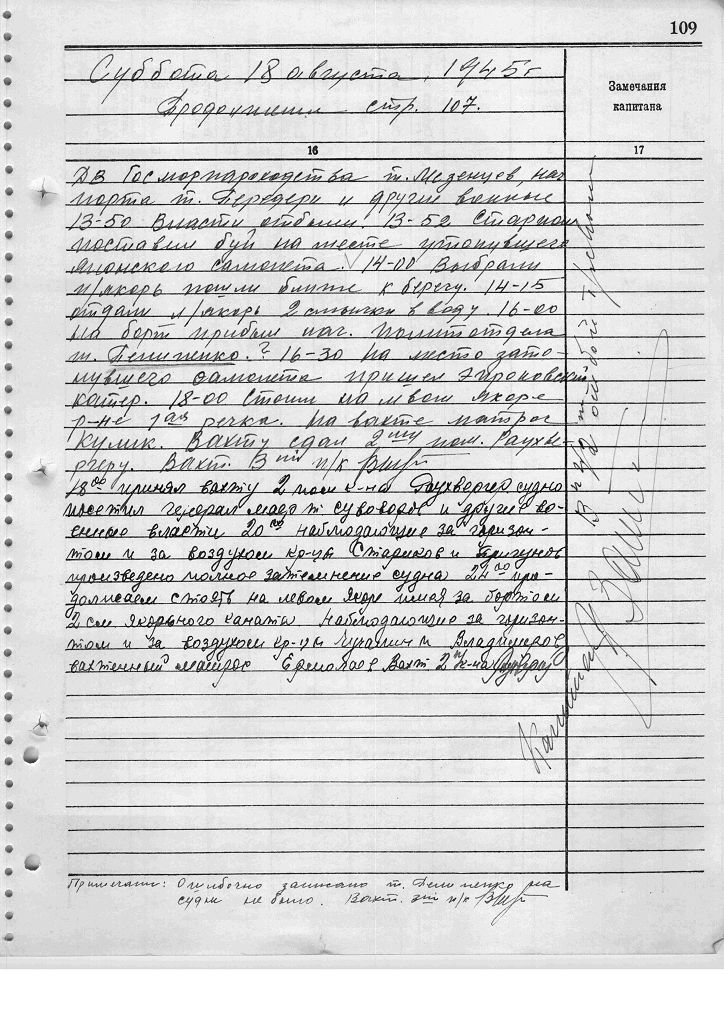 109
Суббота 18 августа 1945 г
Продолжении стр. 107.
Замечания
капитана
16
17
ДВ Госморпароходства т. Мезенцев, нач
порта т. Передери и другие военные
13-50 Власти отбыли. 13-52 Старпом
поставил буй на месте утонувшего
Японского самолета. 14-00 Выбрали
л/якорь пошли ближе к берегу. 14-15
отдали л/якорь 2 смычки в воду. 16-00
на борт прибыл нач. политотдела
т. Белименко.? 16-30 На место зато-
нувшего самолета пришел
катер. 18-00 Стоим на левом якоре
р-не 1ая речка. На вахте матрос
Кулик. Вахту сдал 2му пом. Раухве-
ргеру. Вахт. 3ий п/к
18оо принял вахту 2 пом к-на Раухвергер судно
посетил генерал маер т. Суворов и другие во-
енные власти 20оо наблюдающие за горизон-
том и за воздухом кр-цы Стариков и Пригунов
произведено полное затемнение судна 24оо про-
должаем стоять на левом якоре имея за бортом
2 см. якорного каната наблюдающие за горизон-
том и за воздухом кр-цы и Владимиров
вахтенный матрос Ермолаев Вахт 2 п/к-на
Капитан
Примечани: Ошибочно записано т. Белименко на
судне не было. Вахт. 3ий п/к